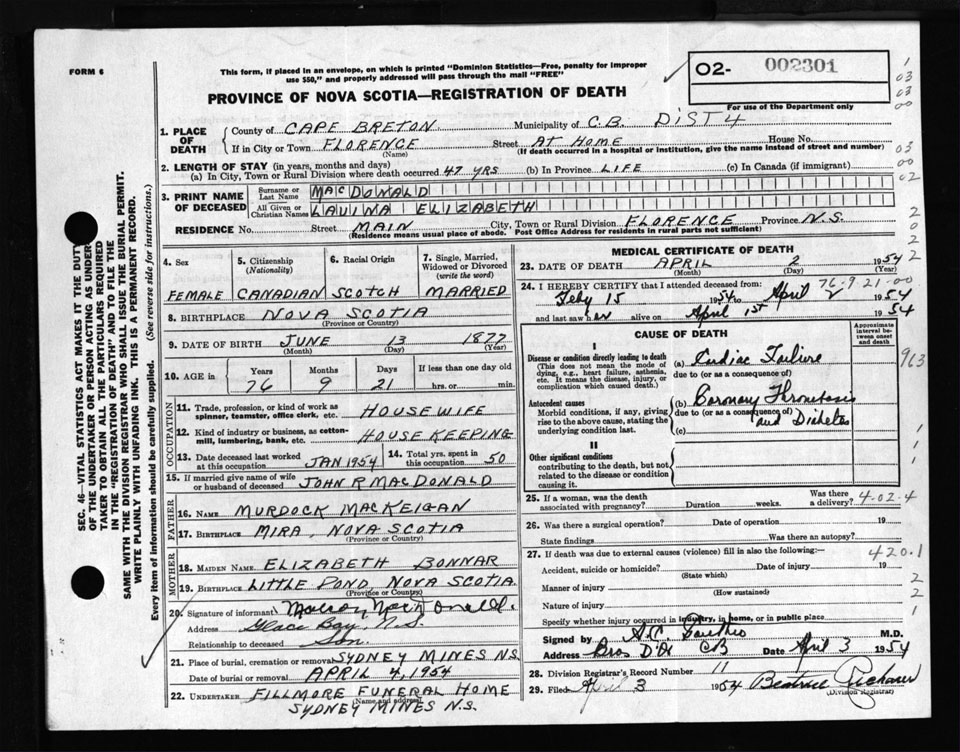 FORM 6
This form, if placed in an envelope, on which is printed "Dominion Statistics—Free, penalty for improper
use $50," and properly addressed will pass through the mail "FREE"
02- 002301
For use of the Department only
PROVINCE OF NOVA SCOTIA—REGISTRATION OF DEATH
1. PLACE OF DEATH
County of CAPE BRETON Municipality of C.B. DIST 4
If in City or Town FLORENCE Street AT HOME House No.
(Name) (If death occurred in a hospital or institution, give the name instead of street and number)
2. LENGTH OF STAY (in years, months and days)
(a) In City, Town or Rural Division where death occurred 47 YRS (b) In Province LIFE (c) In Canada (if immigrant)
3. PRINT NAME OF DECEASED
Surname or Last Name MACDONALD
All Given or Christian Names LAVINA ELIZABETH
RESIDENCE No. Street MAIN City, Town or Rural Division FLORENCE Province N.S.
(Residence means usual place of abode. Post Office Address for residents in rural parts not sufficient)
4. Sex FEMALE
5. Citizenship (Nationality) CANADIAN
6. Racial Origin SCOTCH
7. Single, Married, Widowed or Divorced (write the word) MARRIED
8. BIRTHPLACE NOVA SCOTIA
(Province or Country)
9. DATE OF BIRTH JUNE 13 1877
(Month) (Day) (Year)
10. AGE in Years Months Days If less than one day old
76 9 21 hrs. or min.
OCCUPATION
11. Trade, profession, or kind of work as spinner, teamster, office clerk, etc. HOUSEWIFE
12. Kind of industry or business, as cotton-mill, lumbering, bank, etc. HOUSE KEEPING
13. Date deceased last worked at this occupation JAN 1954 14. Total yrs. spent in this occupation 50
15. If married give name of wife or husband of deceased JOHN R MACDONALD
FATHER
16. NAME MURDOCK MACKEIGAN
17. BIRTHPLACE MIRA, NOVA SCOTIA
(Province or Country)
MOTHER
18. MAIDEN NAME ELIZABETH BONNAR
19. BIRTHPLACE LITTLE POND NOVA SCOTIA
(Province or Country)
20. Signature of informant
Address Glace Bay N.S.
Relationship to deceased Son.
21. Place of burial, cremation or removal SYDNEY MINES N.S.
Date of burial or removal APRIL 4, 1954
22. UNDERTAKER FILLMORE FUNERAL HOME
(Name and address)
SYDNEY MINES N.S.
MEDICAL CERTIFICATE OF DEATH
23. DATE OF DEATH APRIL 2 1954
(Month) (Day) (Year)
76-9-21-00
24. I HEREBY CERTIFY that I attended deceased from
Feby 15 1954 to April 2 1954
and last saw her alive on April 1st 1954
CAUSE OF DEATH
Approximate interval between onset and death
I
Disease or condition directly leading to death (a) Cardiac Failure
(This does not mean the mode of dying, e.g., heart failure, asthenia, etc. It means the disease, injury, or complication which caused death.)
due to (or as a consequence of)
Antecedent causes (b) Coronary Thrombosis
Morbid conditions, if any, giving rise to the above cause, stating the underlying condition last.
due to (or as a consequence of) and Diabetes
(c)
II
Other significant conditions
contributing to the death, but not related to the disease or condition causing it.
25. If a woman, was the death associated with pregnancy? Duration weeks. Was there a delivery? 4-02-4
26. Was there a surgical operation? Date of operation 19
State findings Was there an autopsy?
27. If death was due to external causes (violence) fill in also the following:— 420.1
Accident, suicide or homicide? Date of injury 19
(State which)
Manner of injury
(How sustained)
Nature of injury
Specify whether injury occurred in industry, in home, or in public place
Signed by M.D.
Address Bras D'Or CB Date April 3 1954
28. Division Registrar's Record Number 11
29. Filed April 3 1954 Beatrice
(Division Registrar)
SEC. 46—VITAL STATISTICS ACT MAKES IT THE DUTY
OF THE UNDERTAKER OR PERSON ACTING AS UNDER-
TAKER TO OBTAIN ALL THE PARTICULARS REQUIRED
IN THE "REGISTRATION OF DEATH" AND TO FILE THE
SAME WITH THE DIVISION REGISTRAR WHO SHALL ISSUE THE BURIAL PERMIT.
WRITE PLAINLY WITH UNFADING INK. THIS IS A PERMANENT RECORD.
Every item of information should be carefully supplied. (See reverse side for instructions.)
1
03
03
00
03
00
02
2
0
2
2
963
1
1
1
2
2
1